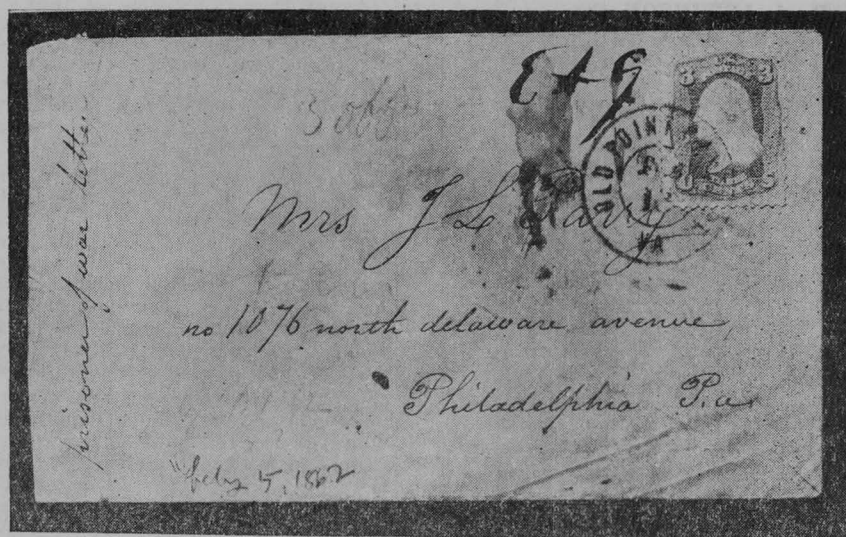 prisoner of war letter
E & G
3 3
OLD POINT
VA
Mrs J L Parry
no 1076 north delaware avenue,
Philadelphia P.a
"feby 5, 1862